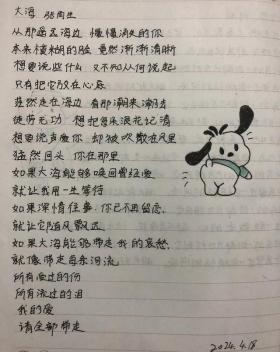 大海 张雨生
从那遥远海边 慢慢消失的你
本来模糊的脸 竟然渐渐清晰
想要说些什么 又不知从何说起
只有把它放在心底
茫然走在海边 看那潮来潮去
徒劳无功 想把每朵浪花记清
想要说声爱你 却被吹散在风里
猛然回头 你在那里
如果大海能够唤回曾经爱
就让我用一生等待
如果深情往事 你已不再留恋
就让它随风飘远
如果大海能够带走我的哀愁
就像带走每条河流
所有受过的伤
所有流过的泪
我的爱
请全部带走
2024.4.18